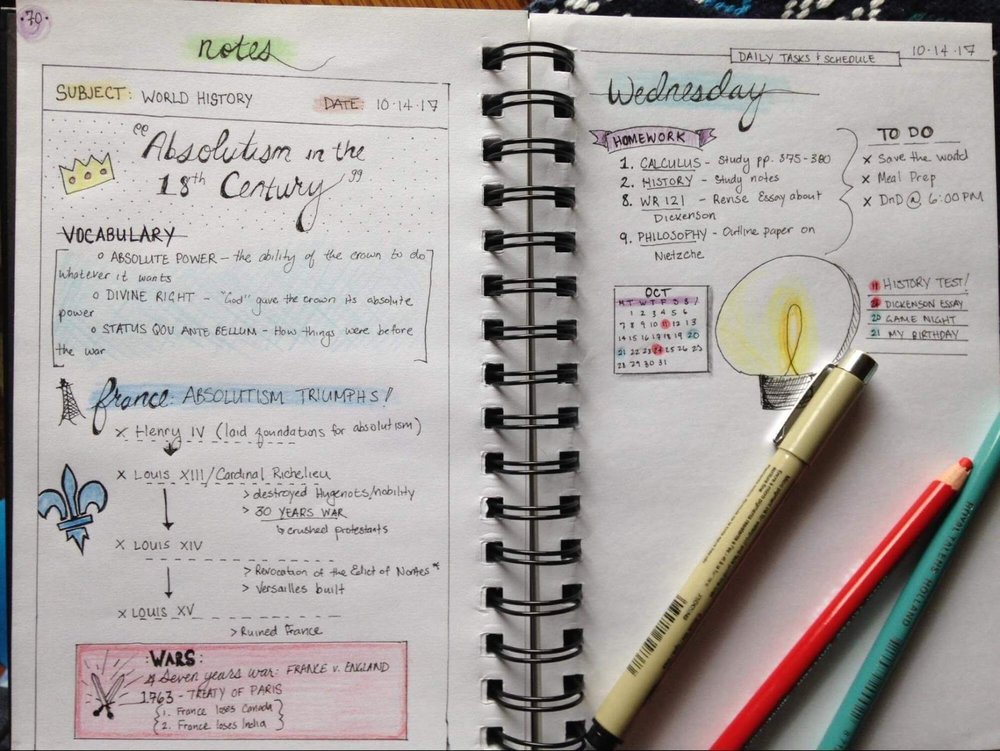 ·70·
notes
SUBJECT: WORLD HISTORY
DATE: 10·14·17
"Absolutism in the
18th Century"
VOCABULARY
° ABSOLUTE POWER – the ability of the crown to do
whatever it wants
° DIVINE RIGHT – "God" gave the crown its absolute
power
° STATUS QOU ANTE BELLUM – How things were before
the war
france: ABSOLUTISM TRIUMPHS!
x Henry IV (laid foundations for absolutism)
x LOUIS XIII/Cardinal Richelieu
> destroyed Hugenots/nobility
> 30 YEARS WAR
↳ crushed protestants
x LOUIS XIV
> Revocation of the Edict of Nantes*
> Versailles built
x LOUIS XV
> Ruined France
:WARS:
Seven years war: FRANCE V. ENGLAND
1763 - TREATY OF PARIS
{1. France loses Canada}
{2. France loses India}
DAILY TASKS & SCHEDULE
10·14·17
Wednesday
HOMEWORK
1. CALCULUS – Study pp. 375-380
2. HISTORY – Study notes
8. WR 121 – Revise Essay about
Dickenson
9. PHILOSOPHY – Outline paper on
Nietzche
TO DO
x Save the world
x Meal Prep
x DnD @ 6:00 PM
OCT
M T W T F S S
1 2 3 4 5 6
7 8 9 10 11 12 13
14 15 16 17 18 19 20
21 22 23 24 25 26 25
28 29 30 31
11 HISTORY TEST!
24 DICKENSON ESSAY
20 GAME NIGHT
21 MY BIRTHDAY
ROYAL TALENS HOLLAND